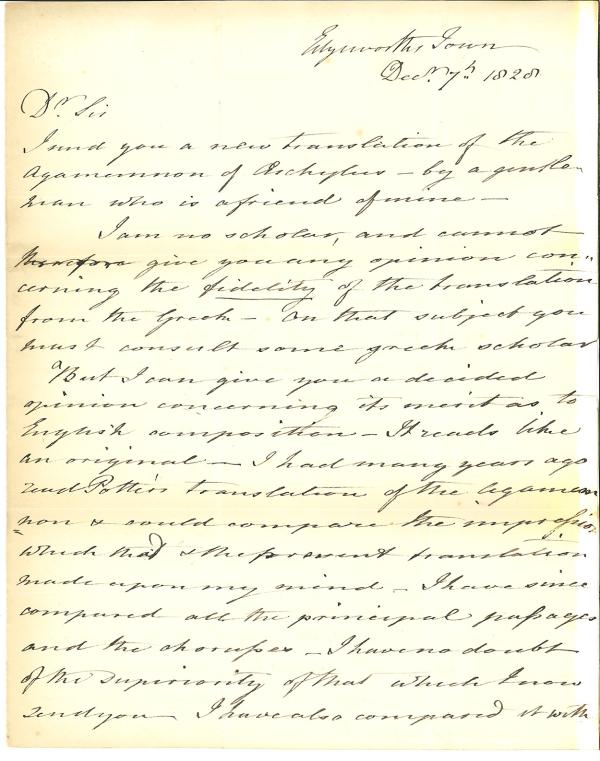 Edgeworths Town
Decr. 7th 1828
Dr. Sir
I send you a new translation of the
Agamemnon of Æschylus – by a gentle-
man who is a friend of mine –
I am no scholar, and cannot
therefore give you any opinion con-
cerning the fidelity of the translation
from the Greek – on that subject you
must consult some greek scholar
But I can give you a decided
opinion concerning its merit as to
English composition – It reads like
an original – I had many years ago
read Potter's translation of the Agamem
non & could compare the impression
which that & the present translation
made upon my mind – I have since
compared all the principal passages
and the chorusses – I have no doubt
of the superiority of that which I now
send you – I have also compared it with